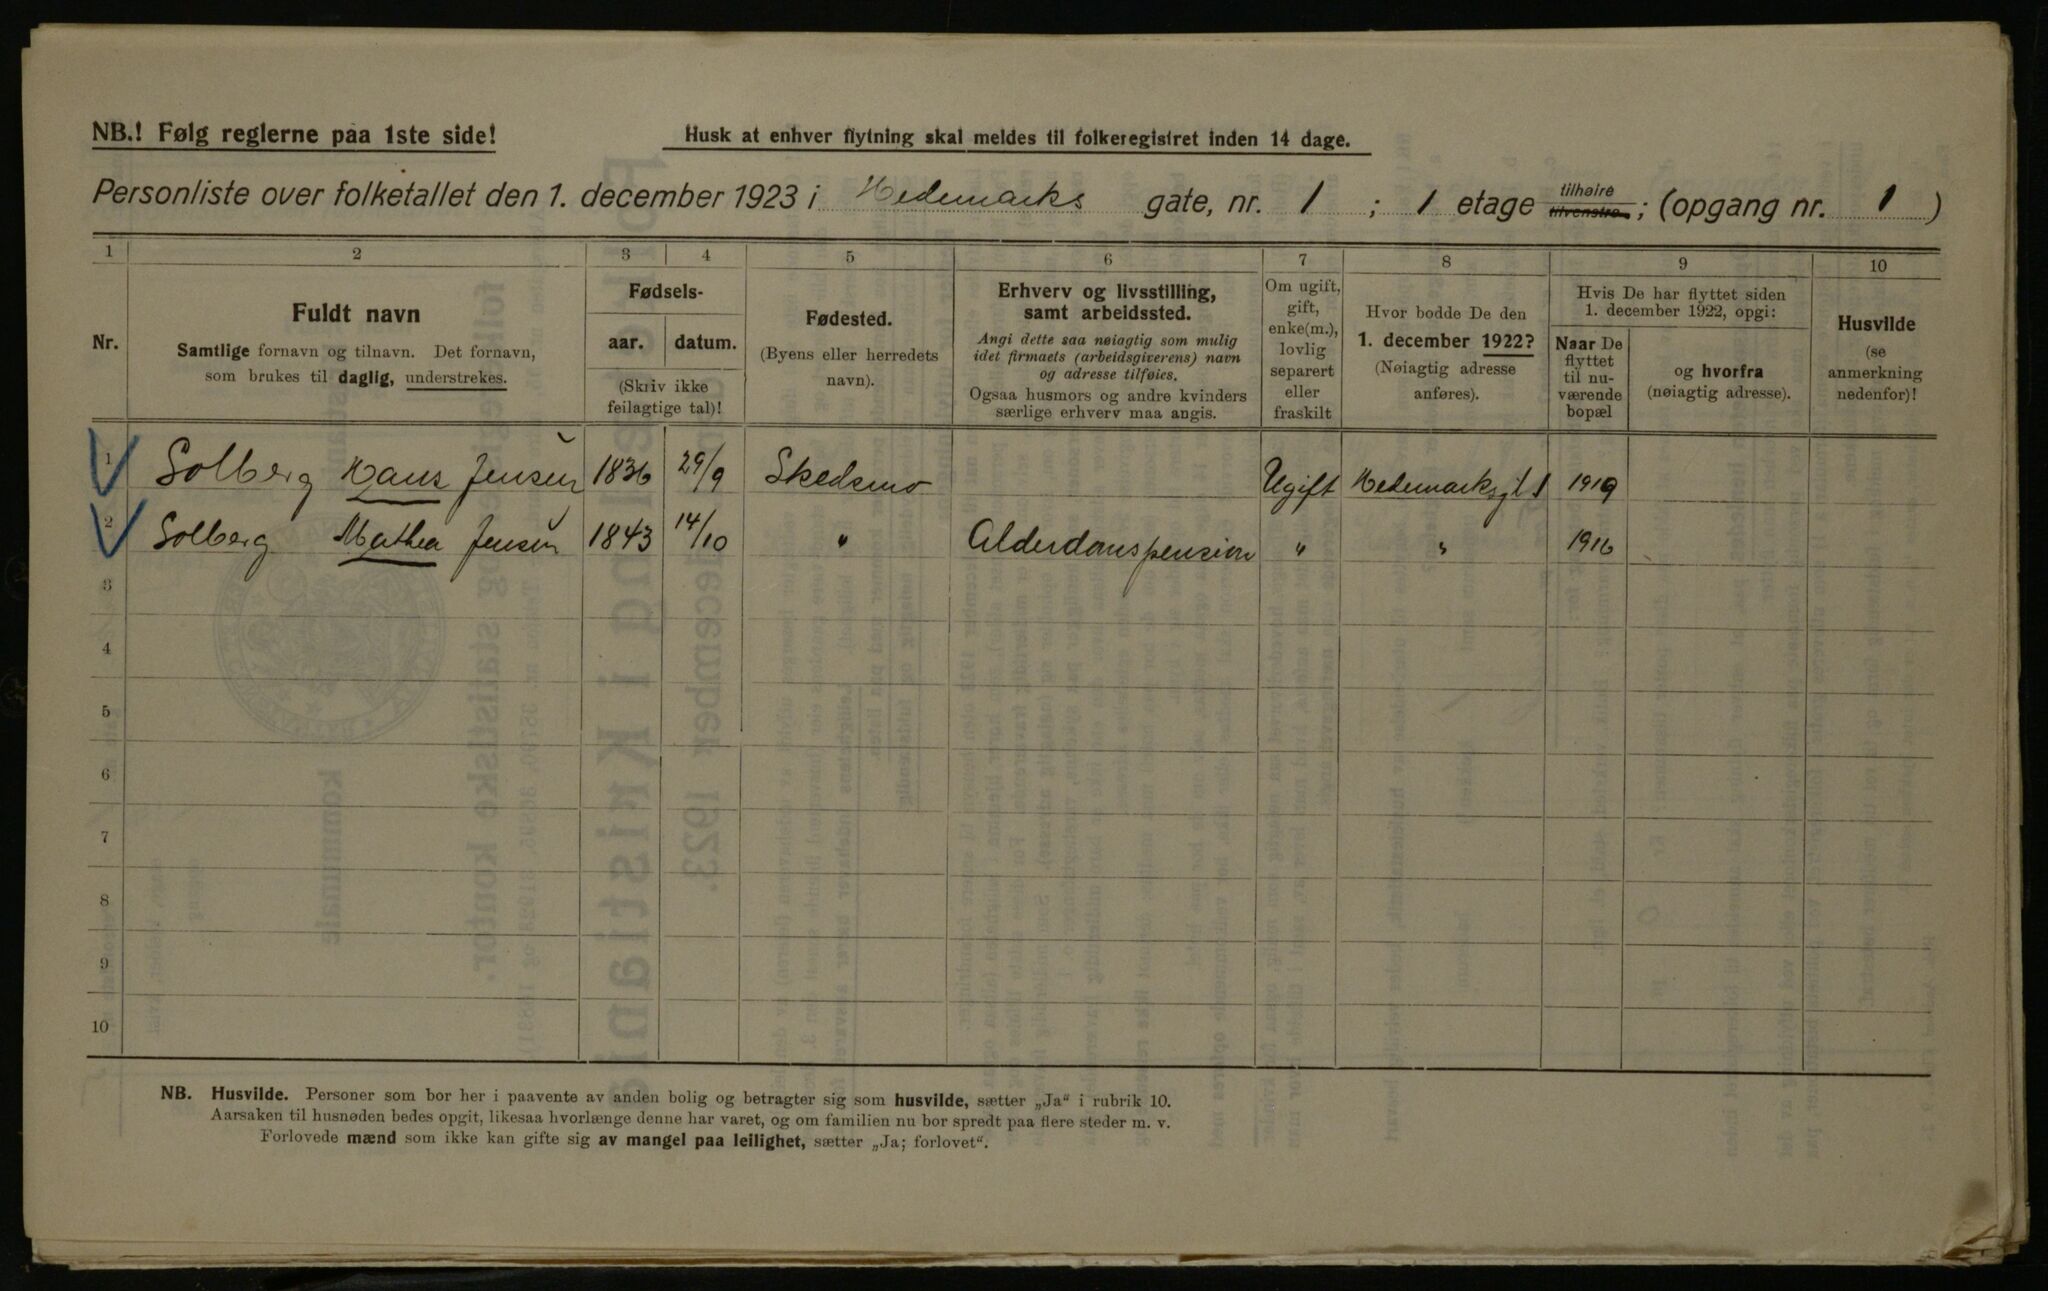 NB.! Følg reglerne paa 1ste side!
Husk at enhver flytning skal meldes til folkeregistret inden 14 dage.
Personliste over folketallet den 1. december 1923 i Hedemarks gate, nr. 1 ; 1 etage tilhøire tilvenstre ; (opgang nr. 1 )
1 2 3 4 5 6 7 8 9 10
Nr.
Fuldt navn
Samtlige fornavn og tilnavn. Det fornavn,
som brukes til daglig, understrekes.
Fødsels-
aar. datum.
(Skriv ikke
feilagtige tal)!
Fødested.
(Byens eller herredets
navn).
Erhverv og livsstilling,
samt arbeidssted.
Angi dette saa nøiagtig som mulig
idet firmaets (arbeidsgiverens) navn
og adresse tilføies.
Ogsaa husmors og andre kvinders
særlige erhverv maa angis.
Om ugift,
gift,
enke(m.),
lovlig
separert
eller
fraskilt
Hvor bodde De den
1. december 1922?
(Nøiagtig adresse
anføres).
Hvis De har flyttet siden
1. december 1922, opgi:
Naar De
flyttet
til nu-
værende
bopæl
og hvorfra
(nøiagtig adresse).
Husvilde
(se
anmerkning
nedenfor)!
1 Solberg Hans Jensen 1836 29/9 Skedsmo Ugift Hedemarksgt 1 1919
2 Solberg Mathea Jensen 1843 14/10 " Alderdomspension " " 1916
3
4
5
6
7
8
9
10
NB. Husvilde. Personer som bor her i paavente av anden bolig og betragter sig som husvilde, sætter „Ja" i rubrik 10.
Aarsaken til husnøden bedes opgit, likesaa hvorlænge denne har varet, og om familien nu bor spredt paa flere steder m. v.
Forlovede mænd som ikke kan gifte sig av mangel paa leilighet, sætter „Ja; forlovet".